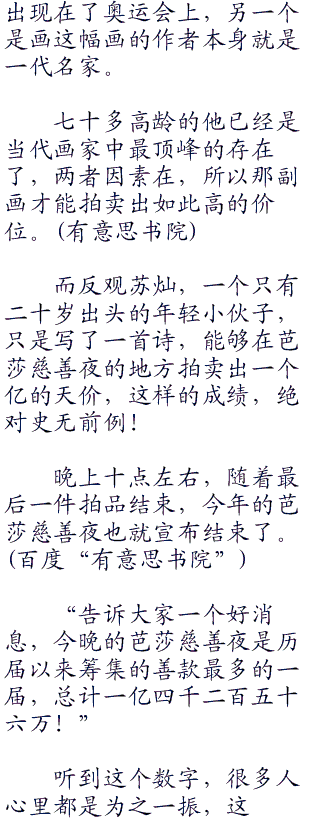 出现在了奥运会上，另一个
是画这幅画的作者本身就是
一代名家。
七十多高龄的他已经是
当代画家中最顶峰的存在
了，两者因素在，所以那副
画才能拍卖出如此高的价
位。(有意思书院)
而反观苏灿，一个只有
二十岁出头的年轻小伙子，
只是写了一首诗，能够在芭
莎慈善夜的地方拍卖出一个
亿的天价，这样的成绩，绝
对史无前例！
晚上十点左右，随着最
后一件拍品结束，今年的芭
莎慈善夜也就宣布结束了。
(百度“有意思书院”)
“告诉大家一个好消
息，今晚的芭莎慈善夜是历
届以来筹集的善款最多的一
届，总计一亿四千二百五十
六万！”
听到这个数字，很多人
心里都是为之一振，这